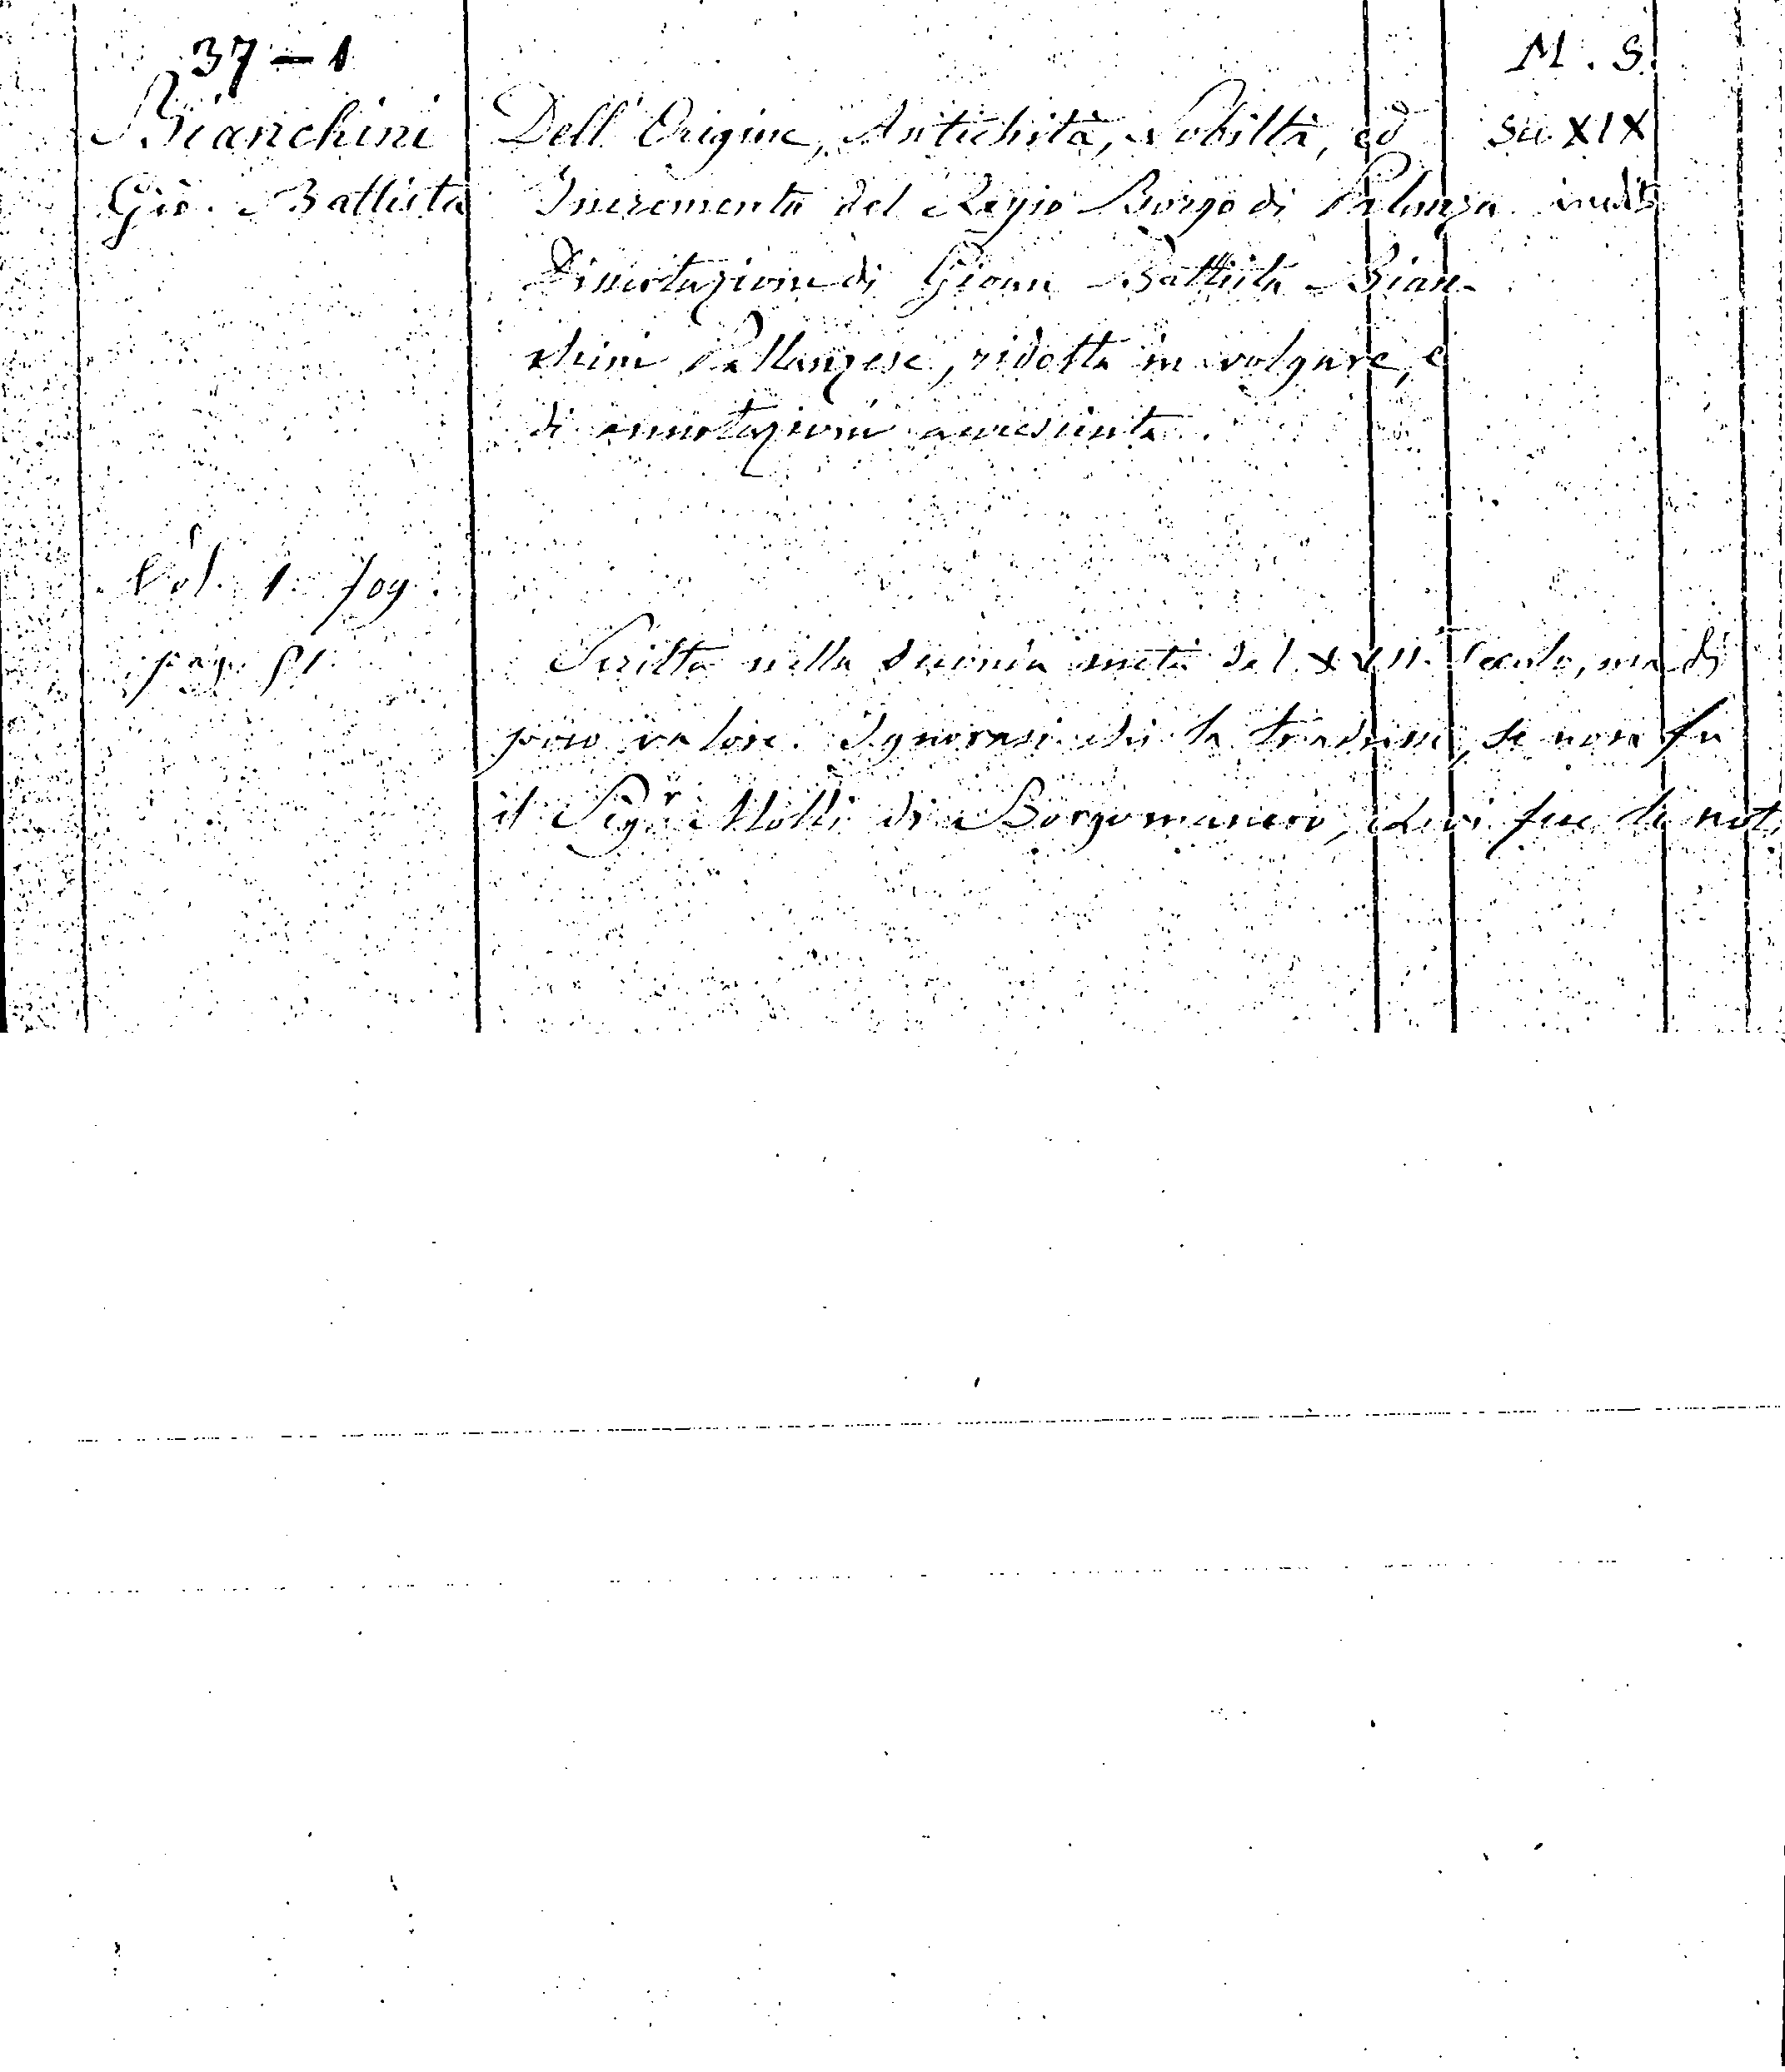 37 – 1
M. S.
Bianchini
Dell' Origine, Antichità, Nobiltà, ed
sec XIX
Gio. Battista
Incremento del Regio Borgo di Palanza
inedito
Dissertazione di Gioan Battista Bian-
chini Pallanzese, ridotta in volgare, e
di annotazioni accresciuta.
Vol. 1. fog.
pag.
Scritta nella seconda metà del XVII. Secolo, ma di
poco valore. Ignorasi chi la tradusse, se non fu
il Sig.r Molli di Borgomanero, che vi fece le note